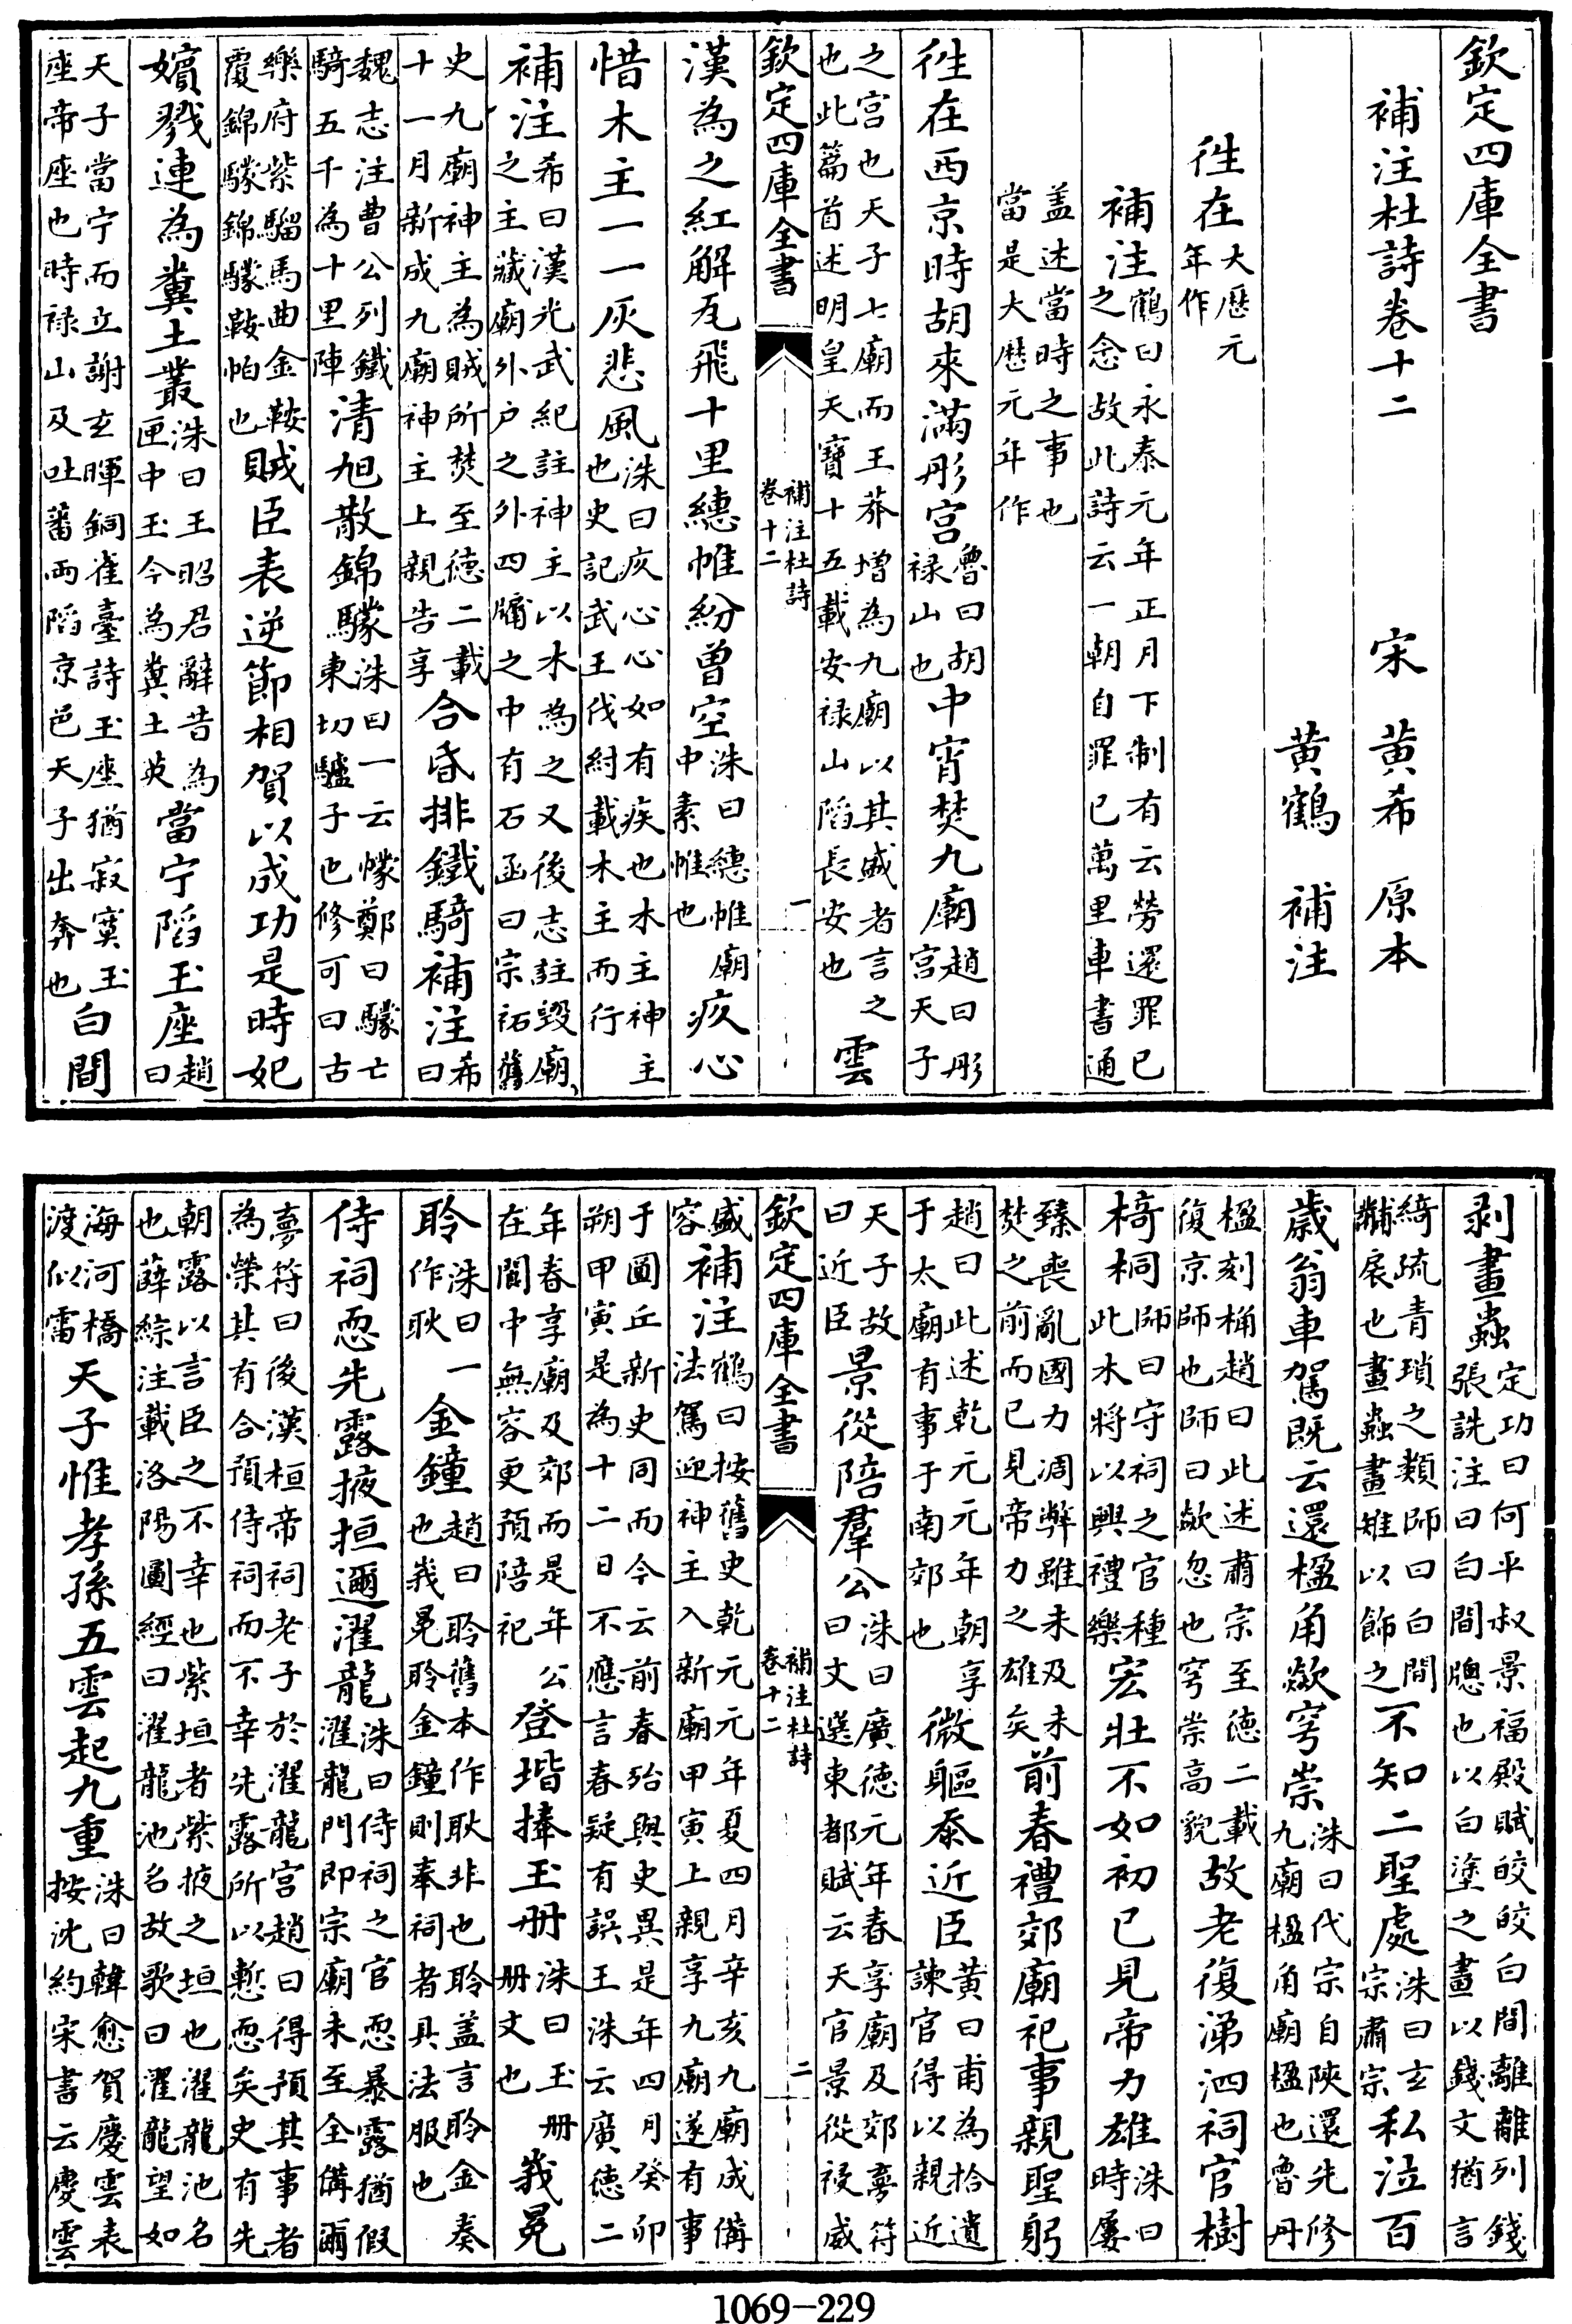 欽定四庫全書
補注杜詩卷十二　宋　黃希　原本
黃鶴　補注
徃在大厯元年作
補注鶴曰永泰元年正月下制有云勞還罪已之念故此詩云一朝自罪已萬里車書通
盖述當時之事也當是大厯元年作
徃在西京時胡來滿彤宮魯曰胡禄山也中宵焚九廟趙曰彤宫天子
之宫也天子七廟而王莽增為九廟以其盛者言之也此篇首述明皇天寶十五載安禄山陷長安也雲
欽定四庫全書　補注杜詩卷十二　一
漢為之紅解瓦飛十里繐帷紛曾空洙曰繐帷廟中素帷也疚心
惜木主一一灰悲風洙曰疚心心如有疾也木主神主也史記武王伐紂載木主而行
補注希曰漢光武紀註神主以木為之又後志註毀廟之主藏廟外户之外四牖之中有石函曰宗祏舊
史九廟神主為賊所焚至德二載十一月新成九廟神主上親告享合昏排鐵騎補注希曰
魏志注曹公列鐵騎五千為十里陣清旭散錦驝洙曰一云幪鄭曰驝亡東切驢子也修可曰古
樂府紫騮馬曲金鞍覆錦驝錦驝鞍帕也賊臣表逆節相賀以成功是時妃
嬪戮連為糞土叢洙曰王昭君辭昔為匣中玉今為糞土英當宁陷玉座趙曰
天子當宁而立謝玄暉銅雀臺詩玉座猶寂寞玉座帝座也時禄山及吐蕃兩陷京邑天子出奔也白間
剥畫蟲定功曰何平叔景福殿賦皎皎白間離離列錢張詵注曰白間牕也以白塗之畫以錢文猶言
綺疏青瑣之類師曰白間黼扆也畫蟲畫雉以飾之不知二聖處洙曰玄宗肅宗私泣百
歲翁車駕既云還楹角欻穹崇洙曰代宗自陝還先修九廟楹角廟楹也魯丹
楹刻桷趙曰此述肅宗至德二載復京師也師曰欻忽也穹崇高貌故老復涕泗祠官樹
椅桐師曰守祠之官種此木將以興禮樂宏壯不如初已見帝力雄洙曰時屢
臻喪亂國力凋弊雖未及未焚之前而已見帝力之雄矣前春禮郊廟祀事親聖躬
趙曰此述乾元元年朝享于太廟有事于南郊也微軀忝近臣黃曰甫為拾遺諫官得以親近
天子故曰近臣景從陪羣公洙曰廣德元年春享廟及郊夢符曰文選東都賦云天官景從祲威
欽定四庫全書　補注杜詩卷十二　二
盛容補注鶴曰按舊史乾元元年夏四月辛亥九廟成備法駕迎神主入新廟甲寅上親享九廟遂有事
于圜丘新史同而今云前春殆與史異是年四月癸卯朔甲寅是為十二日不應言春疑有誤王洙云廣德二
年春享廟及郊而是年公在閬中無容更預陪祀登堦捧玉册洙曰玉册册文也峩冕
聆洙曰一作耿金鐘趙曰聆舊本作耿非也聆盖言聆金奏也峩冕聆金鐘則奉祠者具法服也
侍祠恧先露掖垣邇濯龍洙曰侍祠之官恧暴露猶假濯龍門即宗廟未至全備爾
夢符曰後漢桓帝祠老子於濯龍宮趙曰得預其事者為榮其有合預侍祠而不幸先露所以慙恧矣史有先
朝露以言臣之不幸也紫垣者紫掖之垣也濯龍池名也薛綜注載洛陽圖經曰濯龍池名故歌曰濯龍望如
海河橋渡似雷天子惟孝孫五雲起九重洙曰韓愈賀慶雲表按沈約宋書云慶雲
1069-229